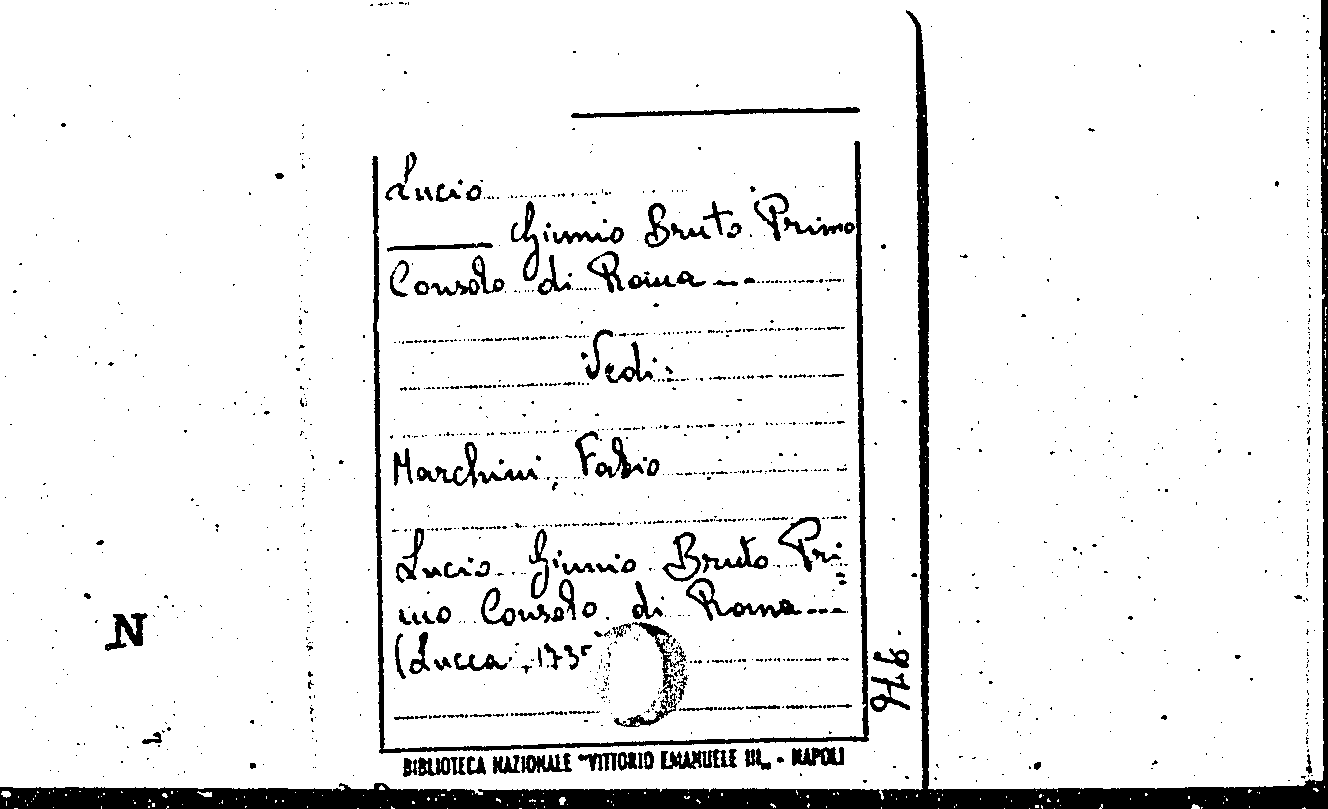 Lucio
Giunio Bruto Primo
Consolo di Roma ---
Vedi:
Marchini, Fabio
Lucio Giunio Bruto Pri=
mo Consolo di Roma ---
(Lucca, 1735
N
BIBLIOTECA NAZIONALE "VITTORIO EMANUELE III" - NAPOLI